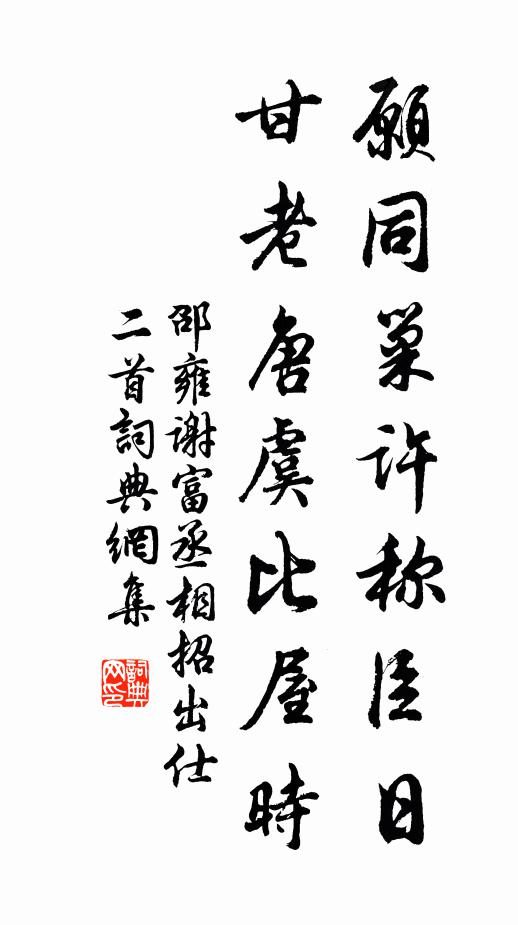 願同巢许称臣日
甘老唐虞比屋時
邵雍谢富丞相招出仕
二首詞典網集
詞典
网印